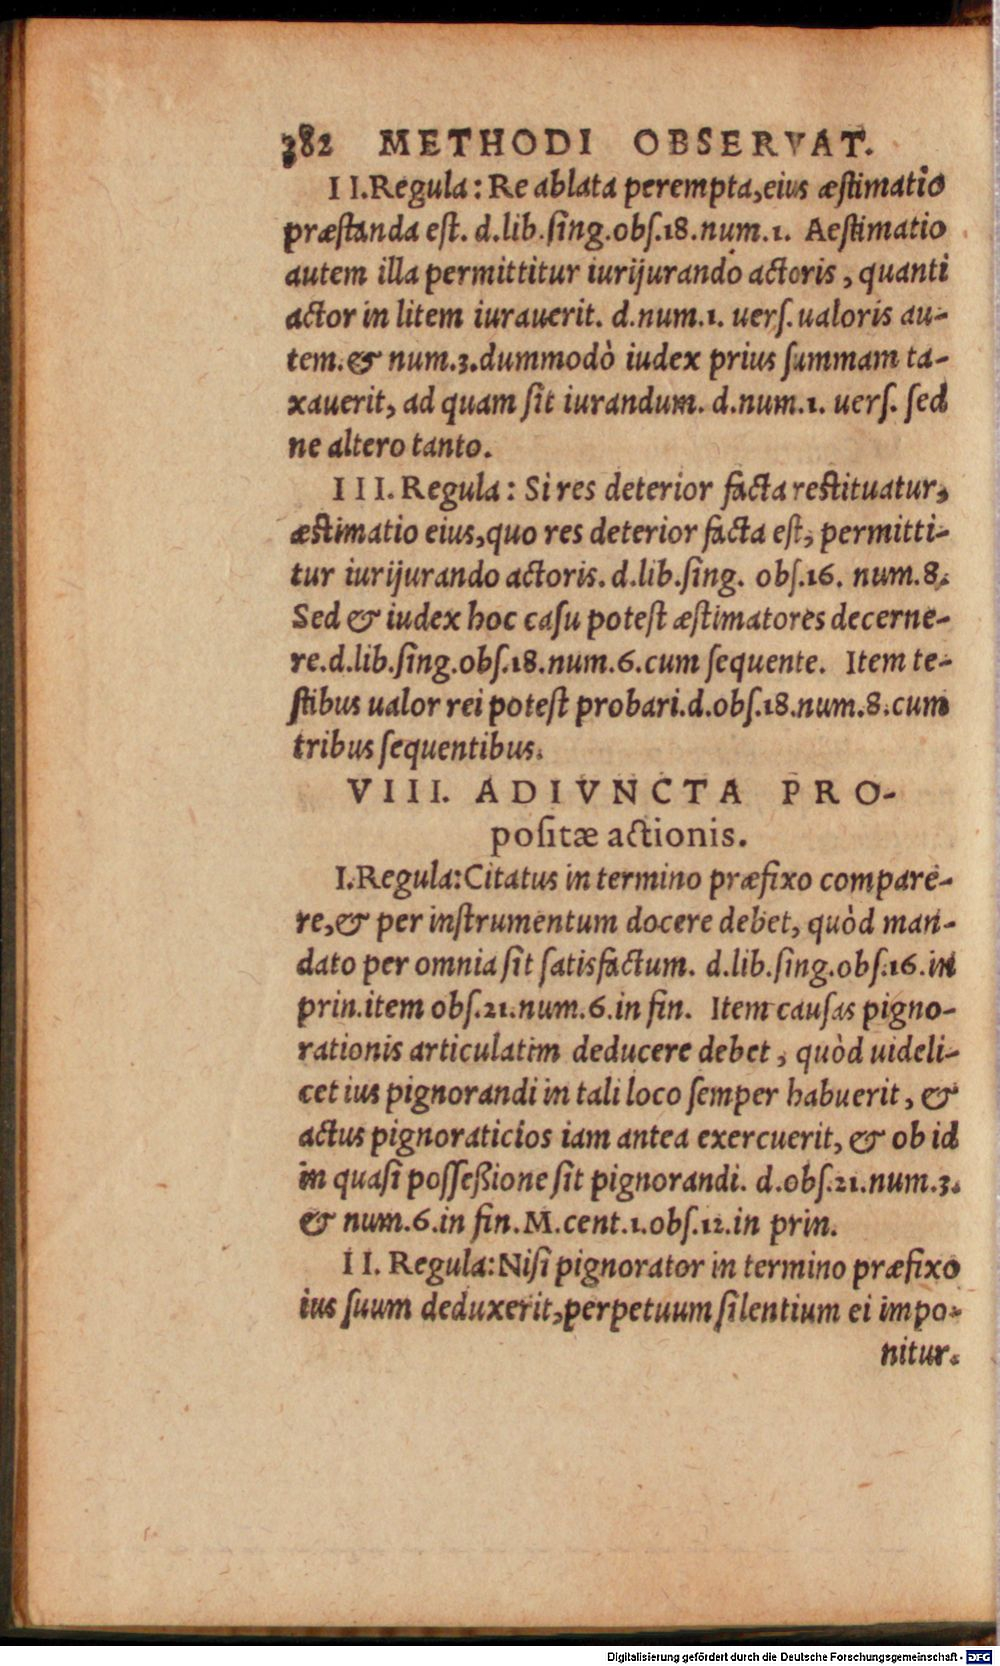 382 METHODI OBSERVAT.
II. Regula: Re ablata perempta, eius æstimatio
præstanda est. d.lib.sing.obs.18.num.1. Aestimatio
autem illa permittitur iurijurando actoris, quanti
actor in litem iurauerit. d.num.1. uers. ualoris au-
tem. & num.3. dummodò iudex prius summam ta-
xauerit, ad quam sit iurandum. d.num.1. uers. sed
ne altero tanto.
III. Regula: Si res deterior facta restituatur,
æstimatio eius, quo res deterior facta est, permitti-
tur iurijurando actoris. d.lib.sing. obs.16. num.8.
Sed & iudex hoc casu potest æstimatores decerne-
re. d.lib.sing.obs.18.num.6. cum sequente. Item te-
stibus ualor rei potest probari. d.obs.18.num.8. cum
tribus sequentibus.
VIII. ADIVNCTA PRO-
positæ actionis.
I. Regula: Citatus in termino præfixo compare-
re, & per instrumentum docere debet, quòd man-
dato per omnia sit satisfactum. d.lib.sing.obs.16. in
prin. item obs.21.num.6. in fin. Item causas pigno-
rationis articulatim deducere debet, quòd uideli-
cet ius pignorandi in tali loco semper habuerit, &
actus pignoraticios iam antea exercuerit, & ob id
in quasi possessione sit pignorandi. d.obs.21.num.3.
& num.6. in fin. M. cent.1. obs.12. in prin.
II. Regula: Nisi pignorator in termino præfixo
ius suum deduxerit, perpetuum silentium ei impo-
nitur.
Digitalisierung gefördert durch die Deutsche Forschungsgemeinschaft - DFG